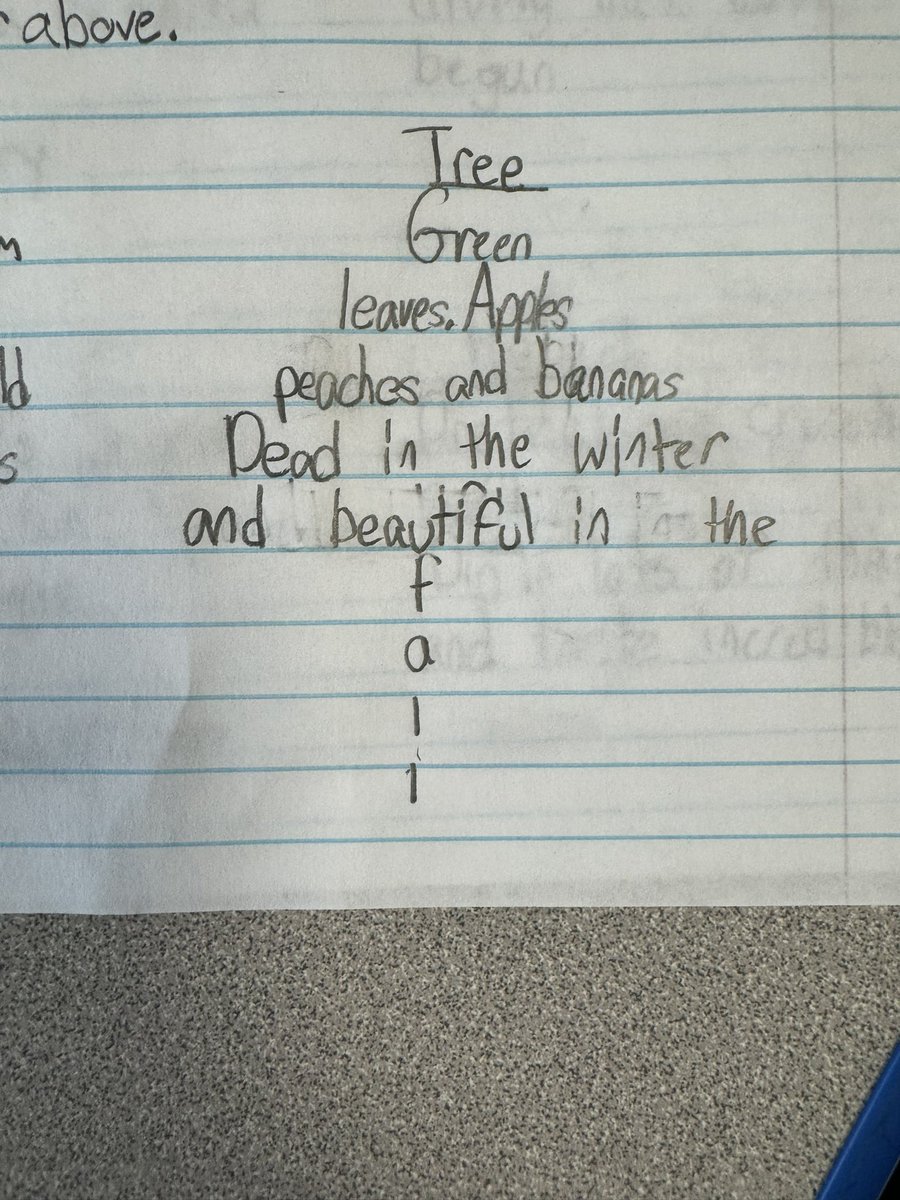 above.
begun
Tree
Green
leaves. Apples
peaches and bananas
Dead in the winter
and beautiful in the
f
a
l
l